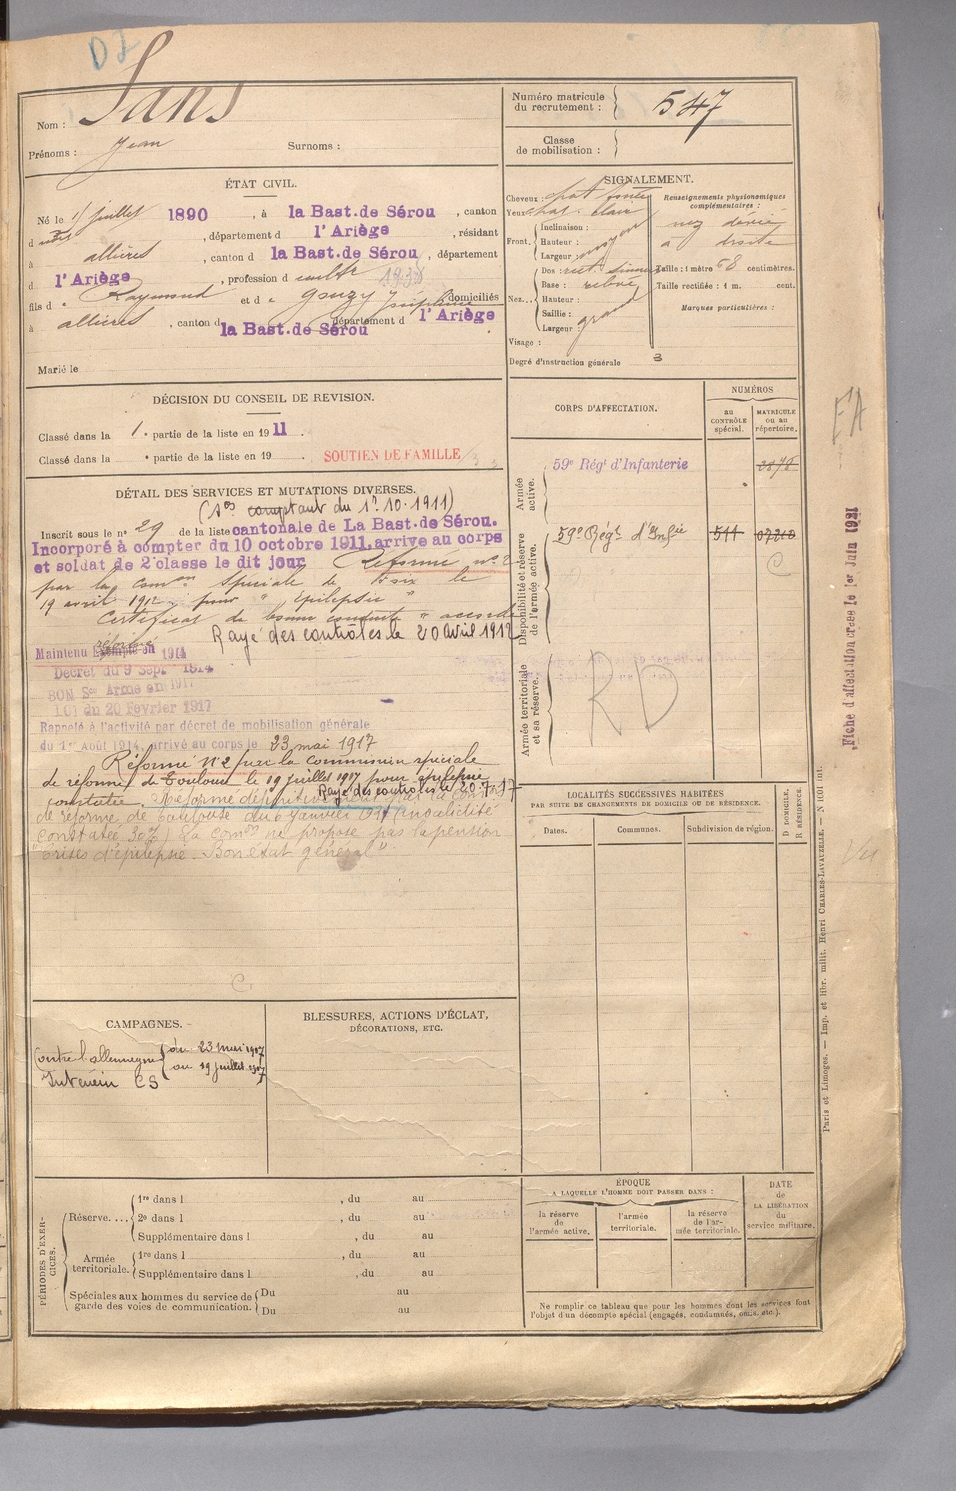 D2
Nom : Sans
Prénoms : Jean Surnoms :
Numéro matricule du recrutement : 547
Classe de mobilisation :
ÉTAT CIVIL.
Né le juillet 1890, à la Bast.de Sérou, canton
d , département d l'Ariège, résidant
à allières, canton d la Bast.de Sérou, département
d l'Ariège, profession d cultr
fils d Raymond et d Gouzy Joséphine domiciliés
à allières, canton d la Bast.de Sérou département d l'Ariège
Marié le
SIGNALEMENT.
Cheveux : chat
Yeux : clair
Front. Inclinaison :
Hauteur : moyen
Largeur :
Nez. Dos rect. sinueux
Base : relevé
Hauteur :
Saillie : grand
Largeur :
Visage :
Degré d'instruction générale 3
Renseignements physionomiques complémentaires :
nez dévié
à droite
Taille : 1 mètre 68 centimètres.
Taille rectifiée : 1 m. cent.
Marques particulières :
DÉCISION DU CONSEIL DE REVISION.
Classé dans la 1e partie de la liste en 1911.
Classé dans la e partie de la liste en 19 . SOUTIEN DE FAMILLE
DÉTAIL DES SERVICES ET MUTATIONS DIVERSES.
comptant du 1r.10.1911)
Inscrit sous le n° 29 de la liste cantonale de La Bast.de Sérou.
Incorporé à compter du 10 octobre 1911, arrive au corps
et soldat de 2e classe le dit jour Réformé n° 2
par la comon spéciale de Foix le
19 avril 1912 pour " épilepsie "
Certificat de bonne conduite " accordé
Rayé des contrôles le 20 avril 1912
Maintenu Exempté réformé en 1914
Décret du 9 Sept 1914
BON Sce Armé en 1917
LOI du 20 Février 1917
Rappelé à l'activité par décret de mobilisation générale
du 1er Août 1914, arrivé au corps le 23 mai 1917
Réformé N°2 par la commission spéciale
de réforme de Toulouse le 19 juillet 1917 pour épilepsie
constatée. Rayé des contrôles le 20.7.17
Réformé définitivement par la Comon
de réforme de Toulouse du 6 Janvier (invalidité
constatée 30%) La comon ne propose pas la pension
"Crises d'épilepsie. Bon état général"
CORPS D'AFFECTATION.
NUMÉROS
AU CONTRÔLE spécial.
MATRICULE OU AU répertoire.
Armée active.
59e Régt d'Infanterie
Disponibilité et réserve de l'armée active.
59e Régt d'Infie 511
Armée territoriale et sa réserve.
RD
LOCALITÉS SUCCESSIVES HABITÉES
PAR SUITE DE CHANGEMENTS DE DOMICILE OU DE RÉSIDENCE.
Dates. Communes. Subdivision de région. D DOMICILE, R RÉSIDENCE.
CAMPAGNES.
Contre l'allemagne du 23 mai 1917
Intérieur CS au 19 juillet 1917
BLESSURES, ACTIONS D'ÉCLAT,
DÉCORATIONS, ETC.
PÉRIODES D'EXERCICES.
Réserve.... 1re dans l , du au
2e dans l , du au
Supplémentaire dans l , du au
Armée territoriale. 1re dans l , du au
Supplémentaire dans l , du au
Spéciales aux hommes du service de garde des voies de communication. Du au
Du au
ÉPOQUE
A LAQUELLE L'HOMME DOIT PASSER DANS :
la réserve de l'armée active.
l'armée territoriale.
la réserve de l'armée territoriale.
DATE de LA LIBÉRATION du service militaire.
Ne remplir ce tableau que pour les hommes dont les services font
l'objet d'un décompte spécial (engagés, condamnés, omis, etc.).
Fiche d'affectation créée le 1er Juin 1921
Paris et Limoges. — Imp. et libr. milit. Henri CHARLES-LAVAUZELLE. — N 1091 int.